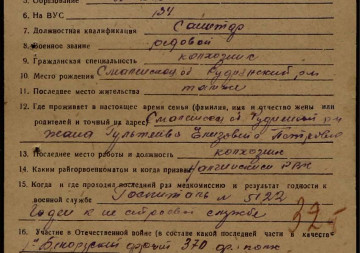 6. На ВУС 134
7. Должностная квалификация
8. Военное звание рядовой
9. Гражданская специальность колхозник
10. Место рождения Смоленская об Руднянский рн
11. Последнее место жительства
12. Где проживает в настоящее время семья (фамилия, имя и отчество жены или
родителей и точный их адрес) Смоленская об
жена Елизавета Петровна
колхозник
13. Последнее место работы и должность
14. Каким райгорвоенкоматом и когда призван РВК
15. Когда и где проходил последний раз медкомиссию и результат годности к
военной службе Госпиталь № 5122
Годен к не строевой службе
16. Участие в Отечественной войне (в составе какой последней части и в качестве
1 Белорусский фронт 370
325